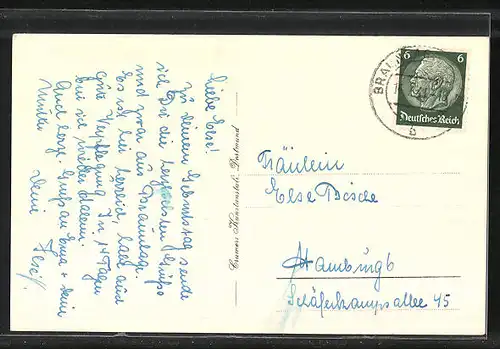 Liebe Else!
Zu deinem Geburtstag sende
ich Dir die herzlichsten Grüße
und zwar aus Braunlage.
Es ist hier herrlich, habe auch
gute Verpflegung. In 14 Tagen
bin ich wieder daheim.
Auch herzl. Gruß an Erna + Dein
Mutter
Deine
Cramers Kunstanstalt, Dortmund
BRAUN
b
6 6
Deutsches Reich
Fräulein
Else Dösche
Hamburg 6
Schäferkampsallee 45